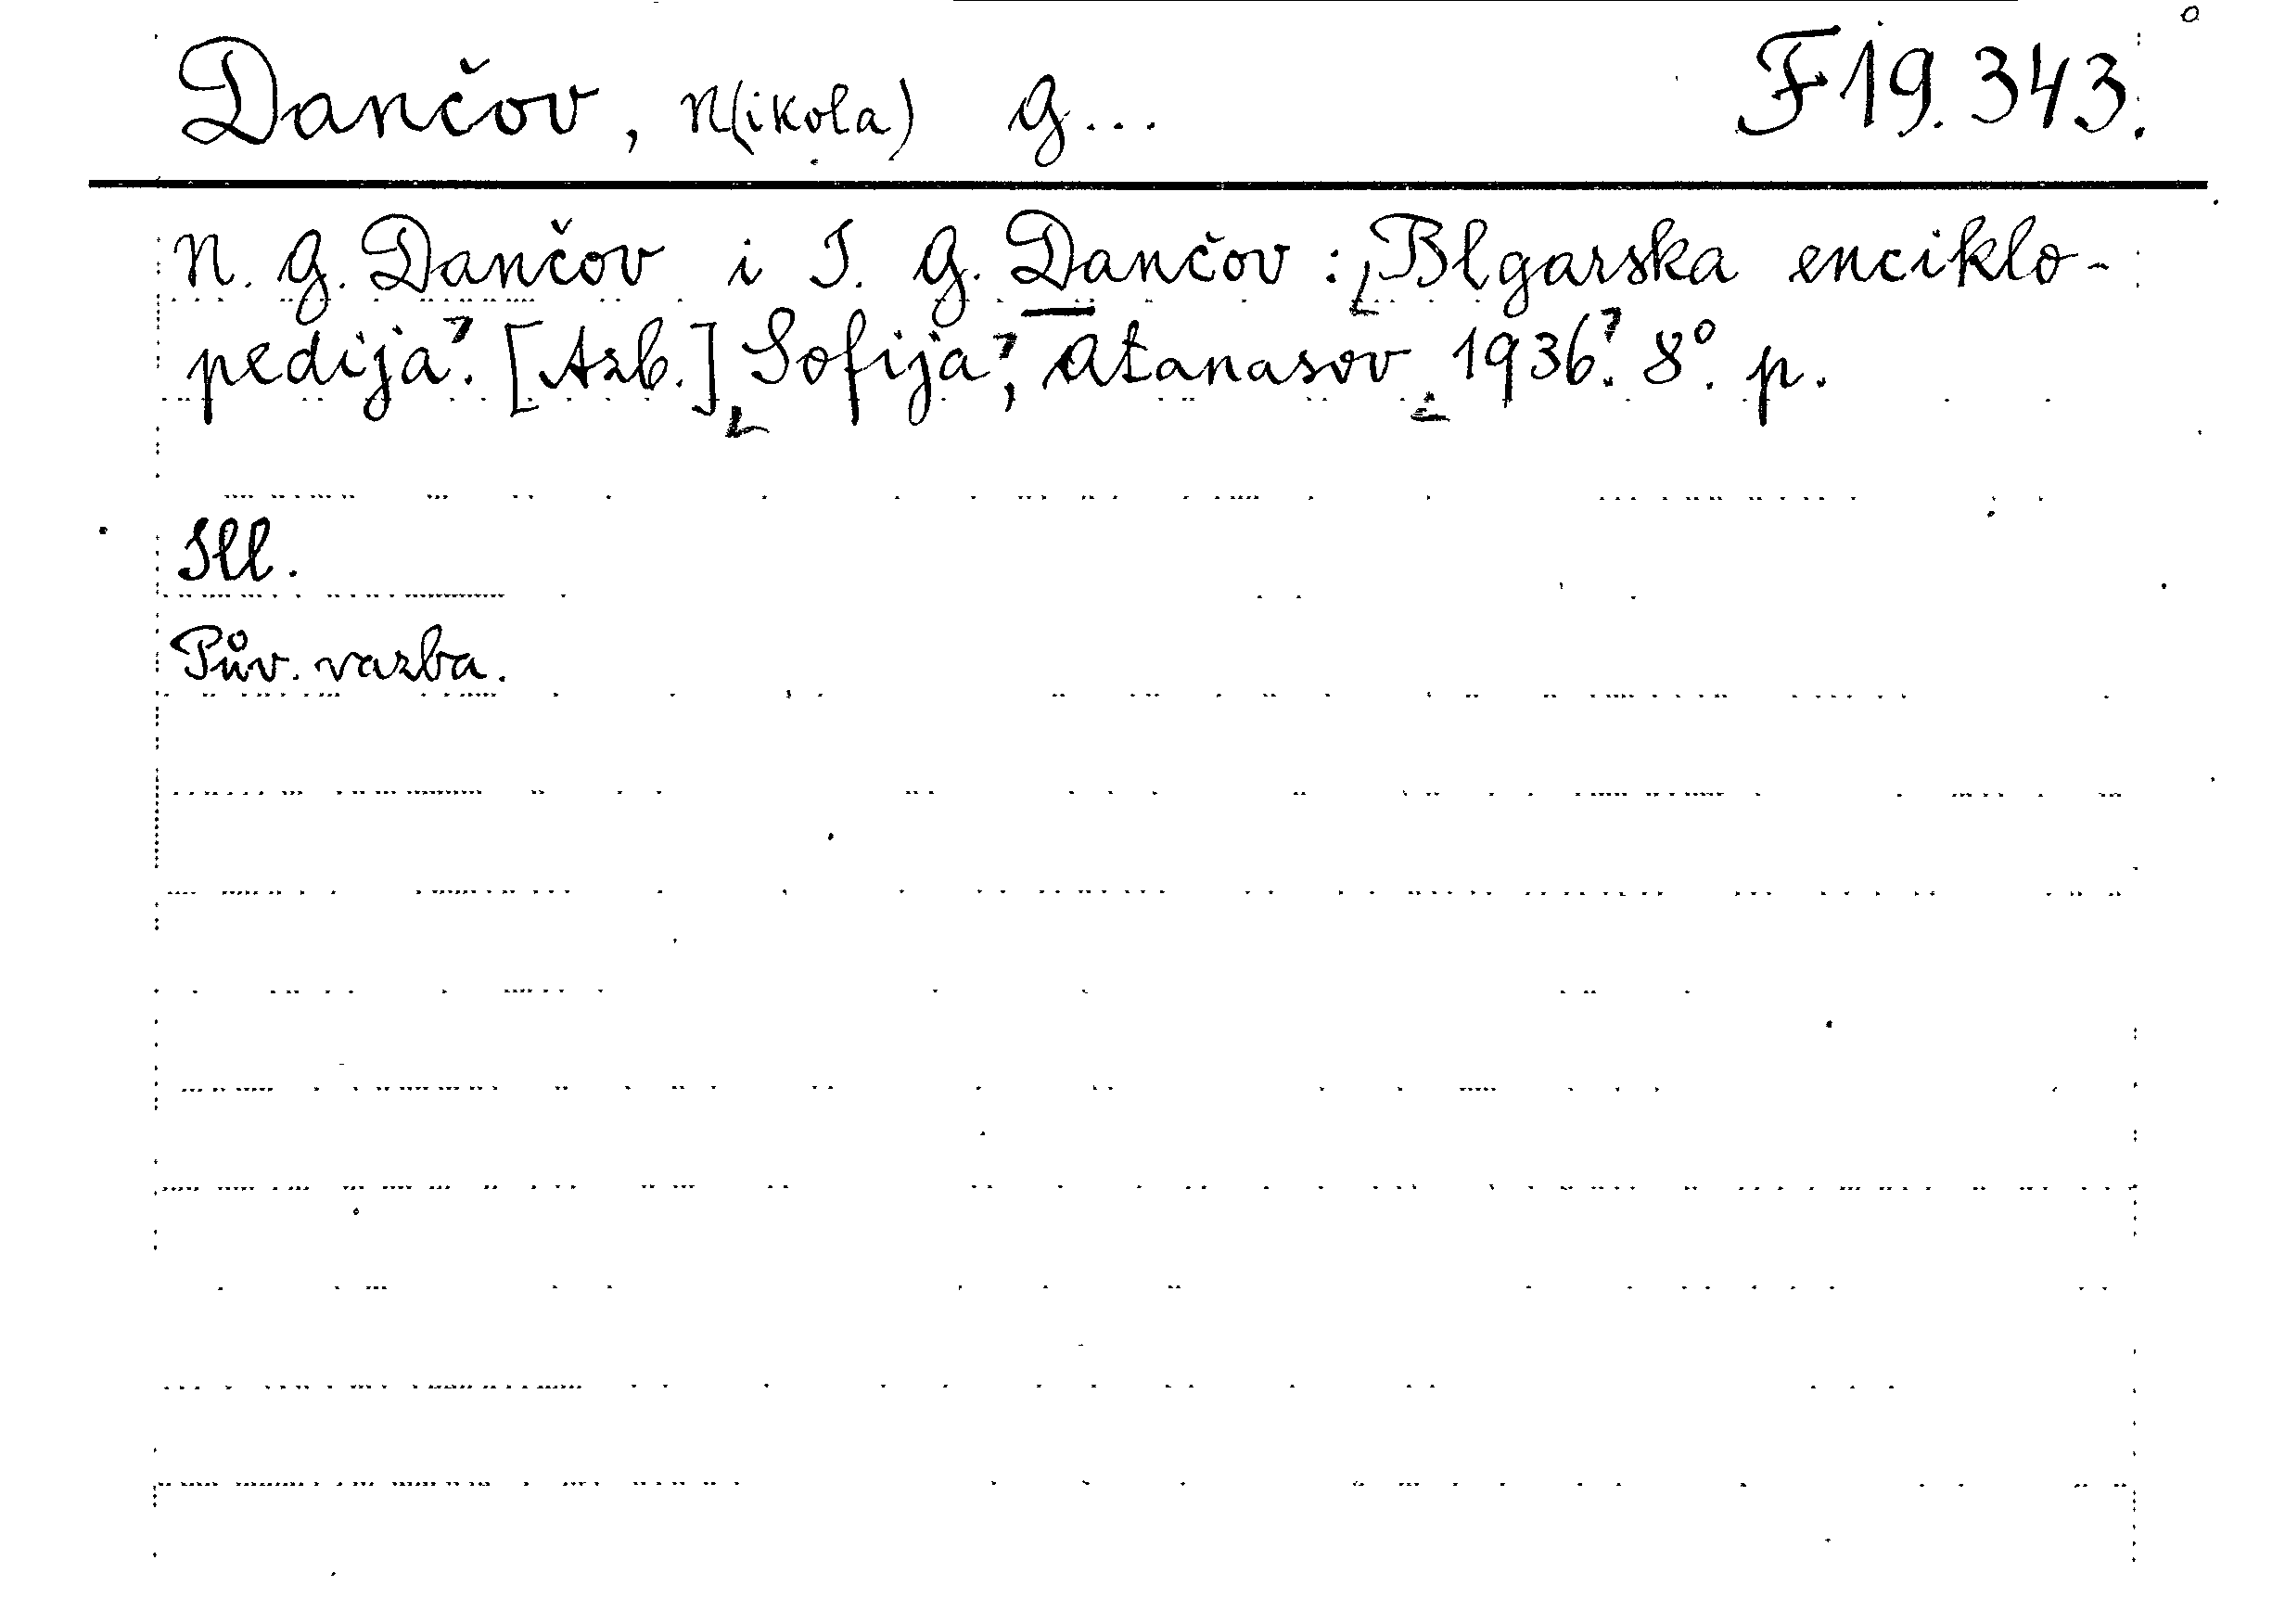 Dančov, N(ikola) G... F 19.343.
N. G. Dančov i I. G. Dančov: Blgarska enciklo-
pedija. [Azb.] Sofija, Atanasov 1936. 8°. p.
Ill.
Pův. vazba.